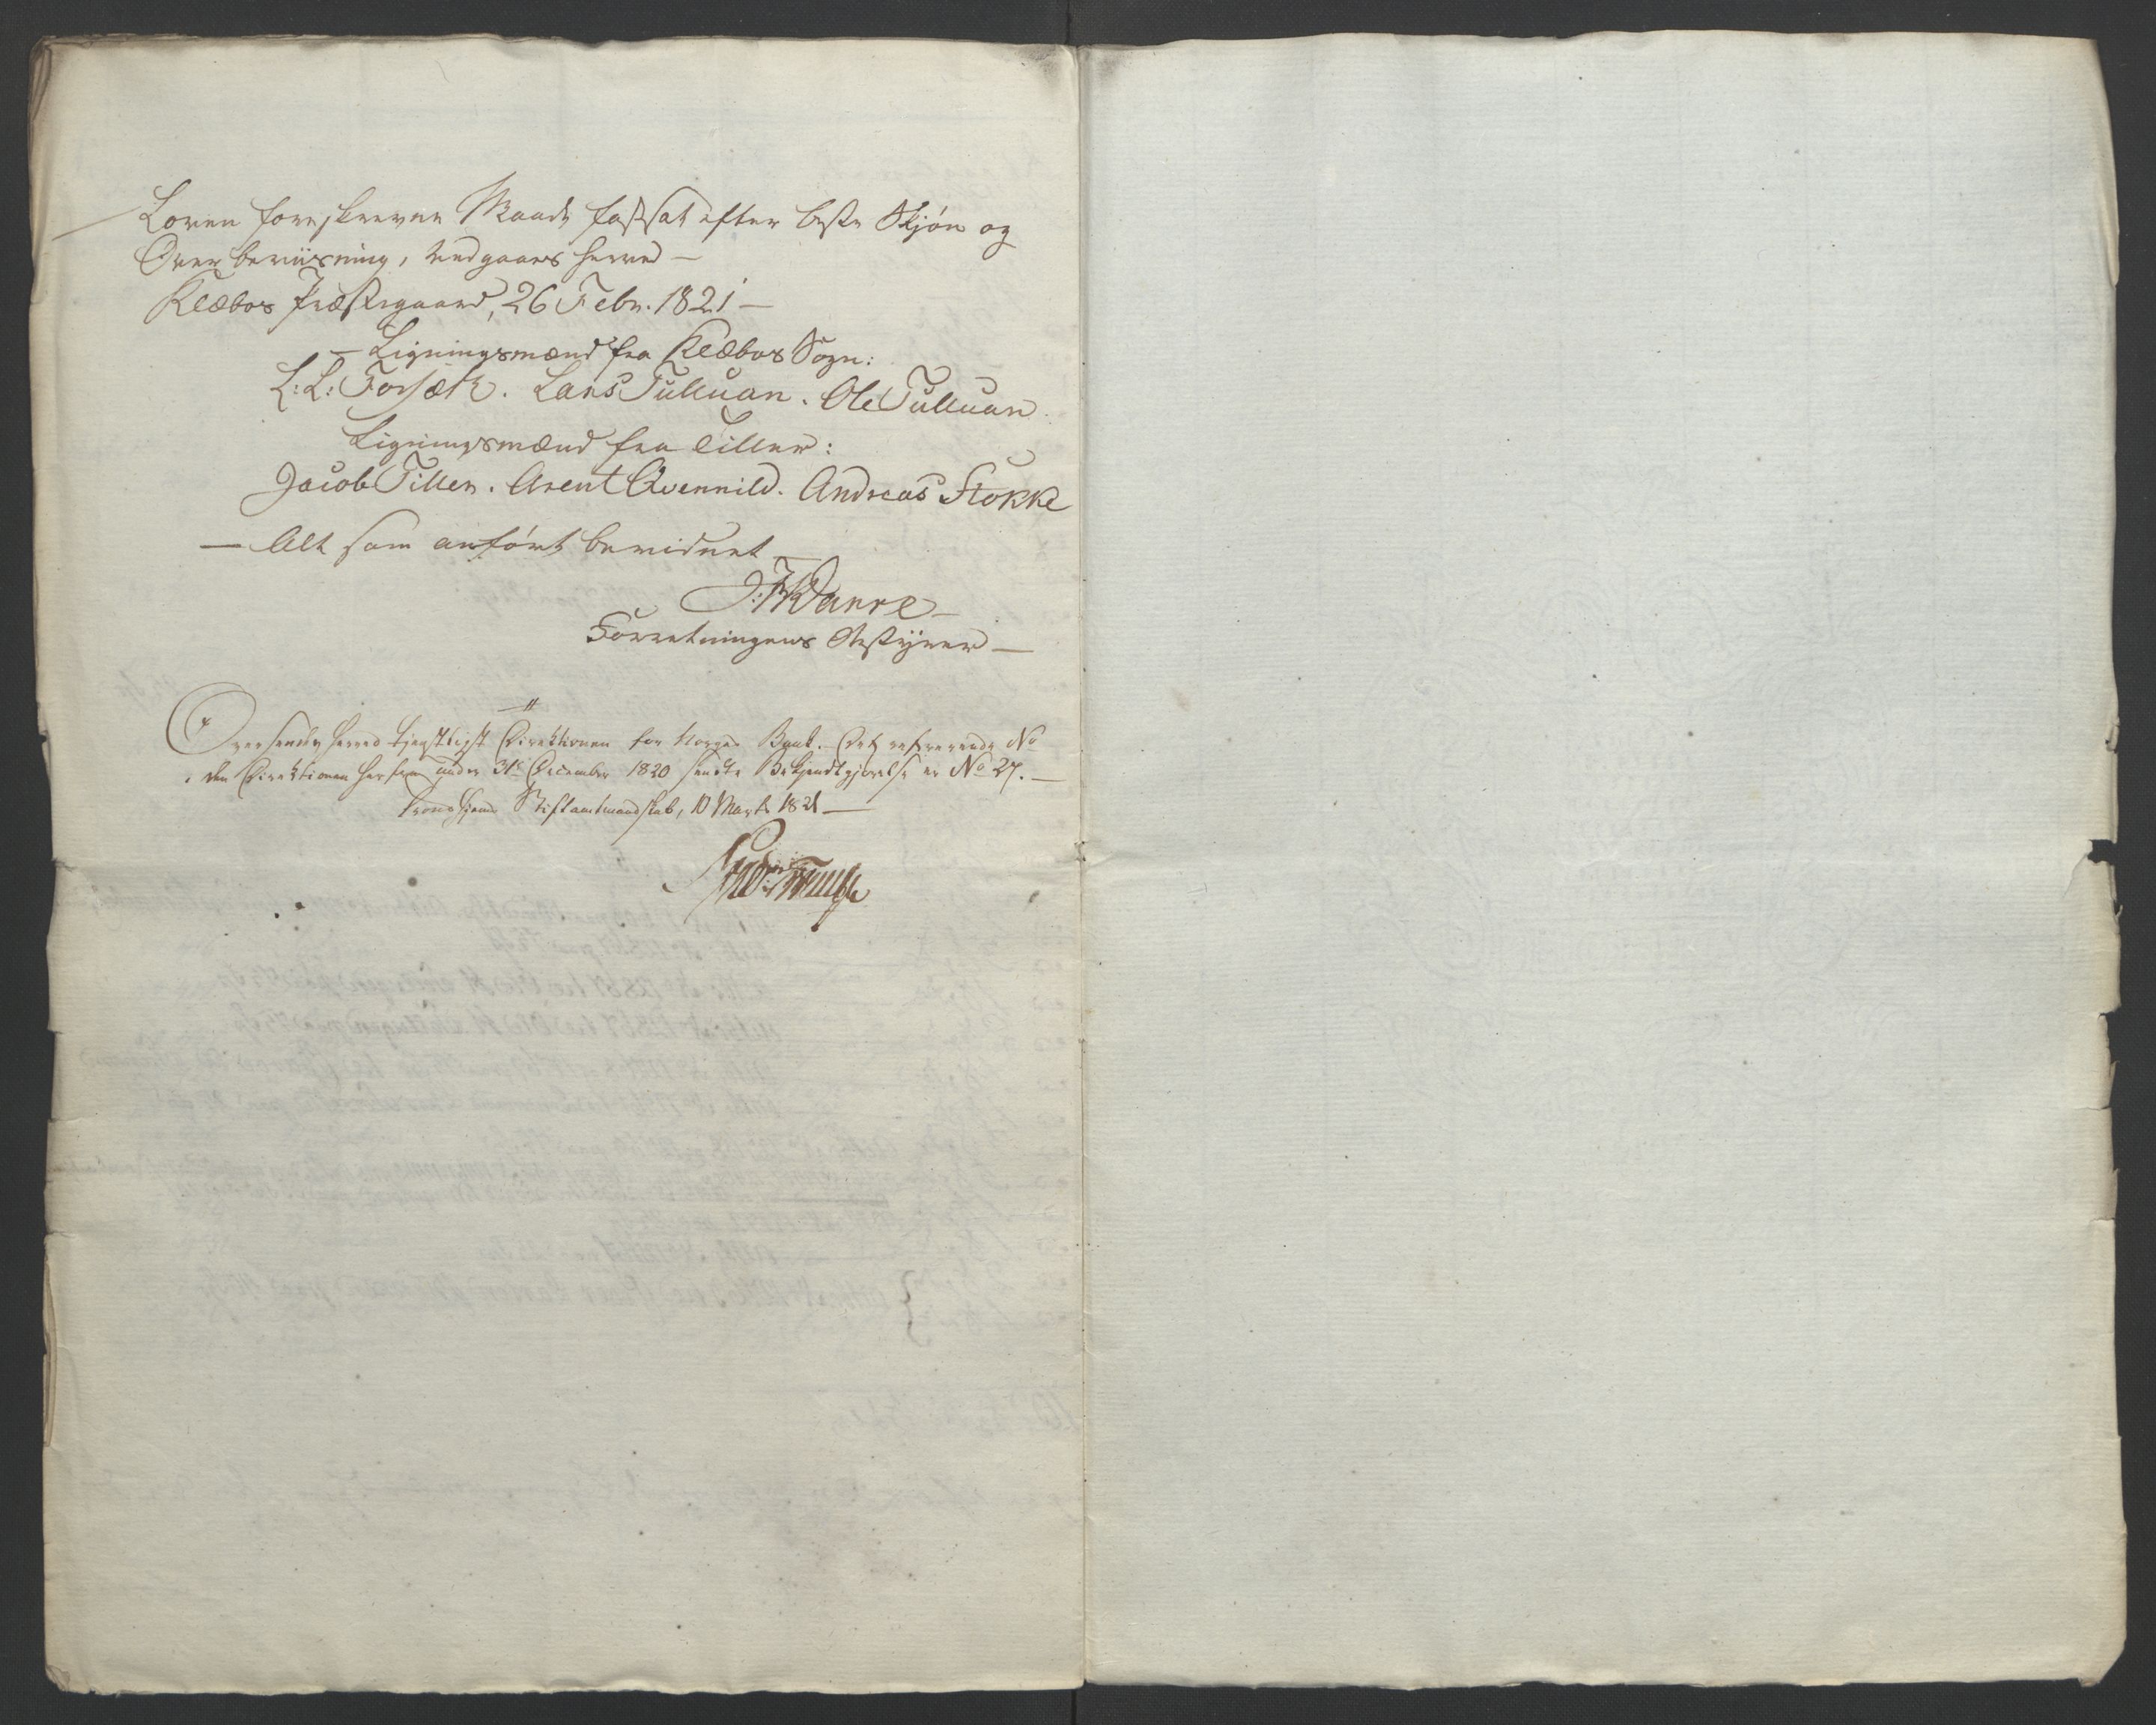 Loven foreskreven Maade fastsat efter beste Skjön og
Overbeviisning, vedgaaes herved —
Klæboe Præstegaard, 26 Febr. 1821 —
— Ligningsmænd fra Klæboe Sogn:
L: L: Forsæth. Lars Tulluan. Ole Tulluan.
Ligningsmænd fra Tiller:
Jacob Tiller. Arent Qvennild. Andreas Stokke
— Alt som anfört bevidnet —
Forretningens Bestyrer —
Oversendes herved tjenstligst Directionen for Norges Bank. — Det refererende No
i den Directionen herfra under 31te December 1820 sendte Bekjendtgjørelse er No 27. —
Trondhjems Stiftamtmandskab, 10 Marts 1821 —